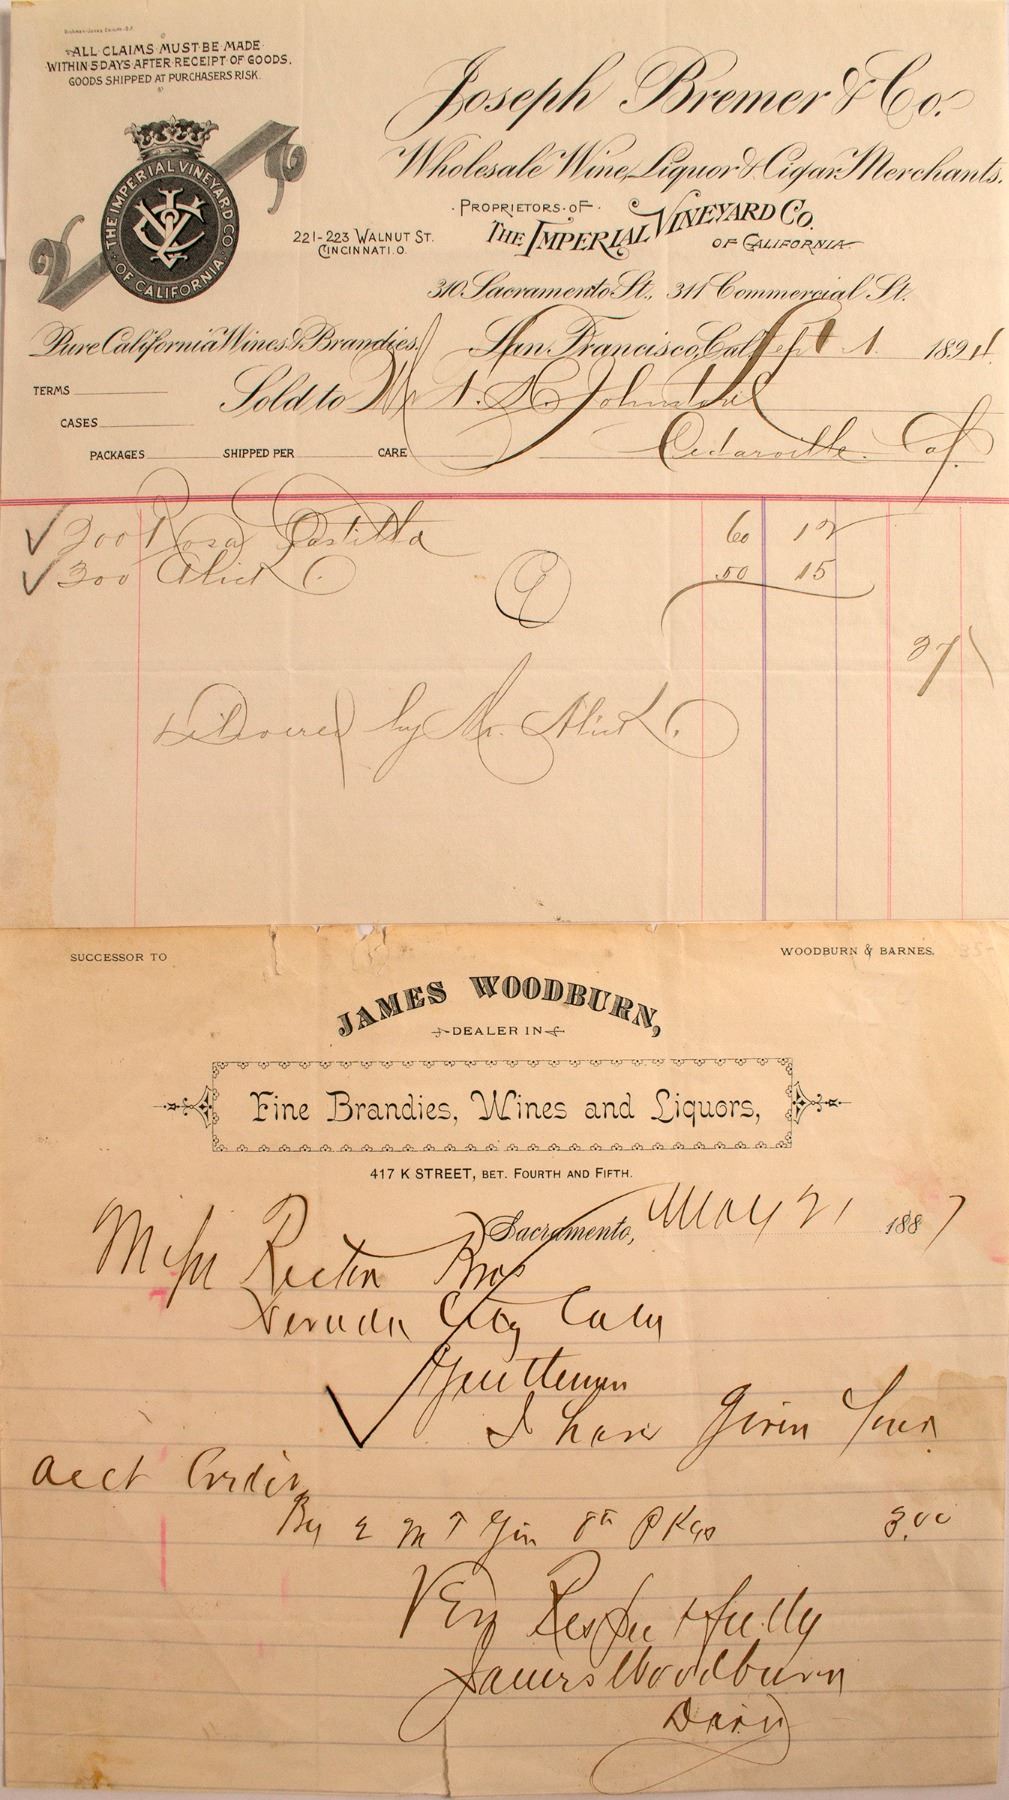 ALL CLAIMS MUST BE MADE
WITHIN 5 DAYS AFTER RECEIPT OF GOODS.
GOODS SHIPPED AT PURCHASERS RISK.
THE IMPERIAL VINEYARD CO.
OF CALIFORNIA
Joseph Bremer & Co.
Wholesale Wine, Liquor & Cigar Merchants.
PROPRIETORS OF
THE IMPERIAL VINEYARD CO.
OF CALIFORNIA
221-223 WALNUT ST.
CINCINNATI. O.
310 Sacramento St., 311 Commercial St.
Pure California Wines & Brandies.
San Francisco, Cal. Sept 1 1894
TERMS
Sold to Mr
Johnstone
CASES
Cedarville Cal.
PACKAGES SHIPPED PER CARE
200 Rosa 60 12
300 Alick 50 15
27
Delivered by Mr. Alick
SUCCESSOR TO WOODBURN & BARNES.
JAMES WOODBURN,
DEALER IN
Fine Brandies, Wines and Liquors,
417 K STREET, BET. FOURTH AND FIFTH.
Sacramento, May 21 1887
Mess Rector Bros
Nevada City Caly
Gentlemen
I have Given Your
acct Credit
By 2 M T Gin 8th Pkgs 3.00
Very Respectfully
James Woodburn